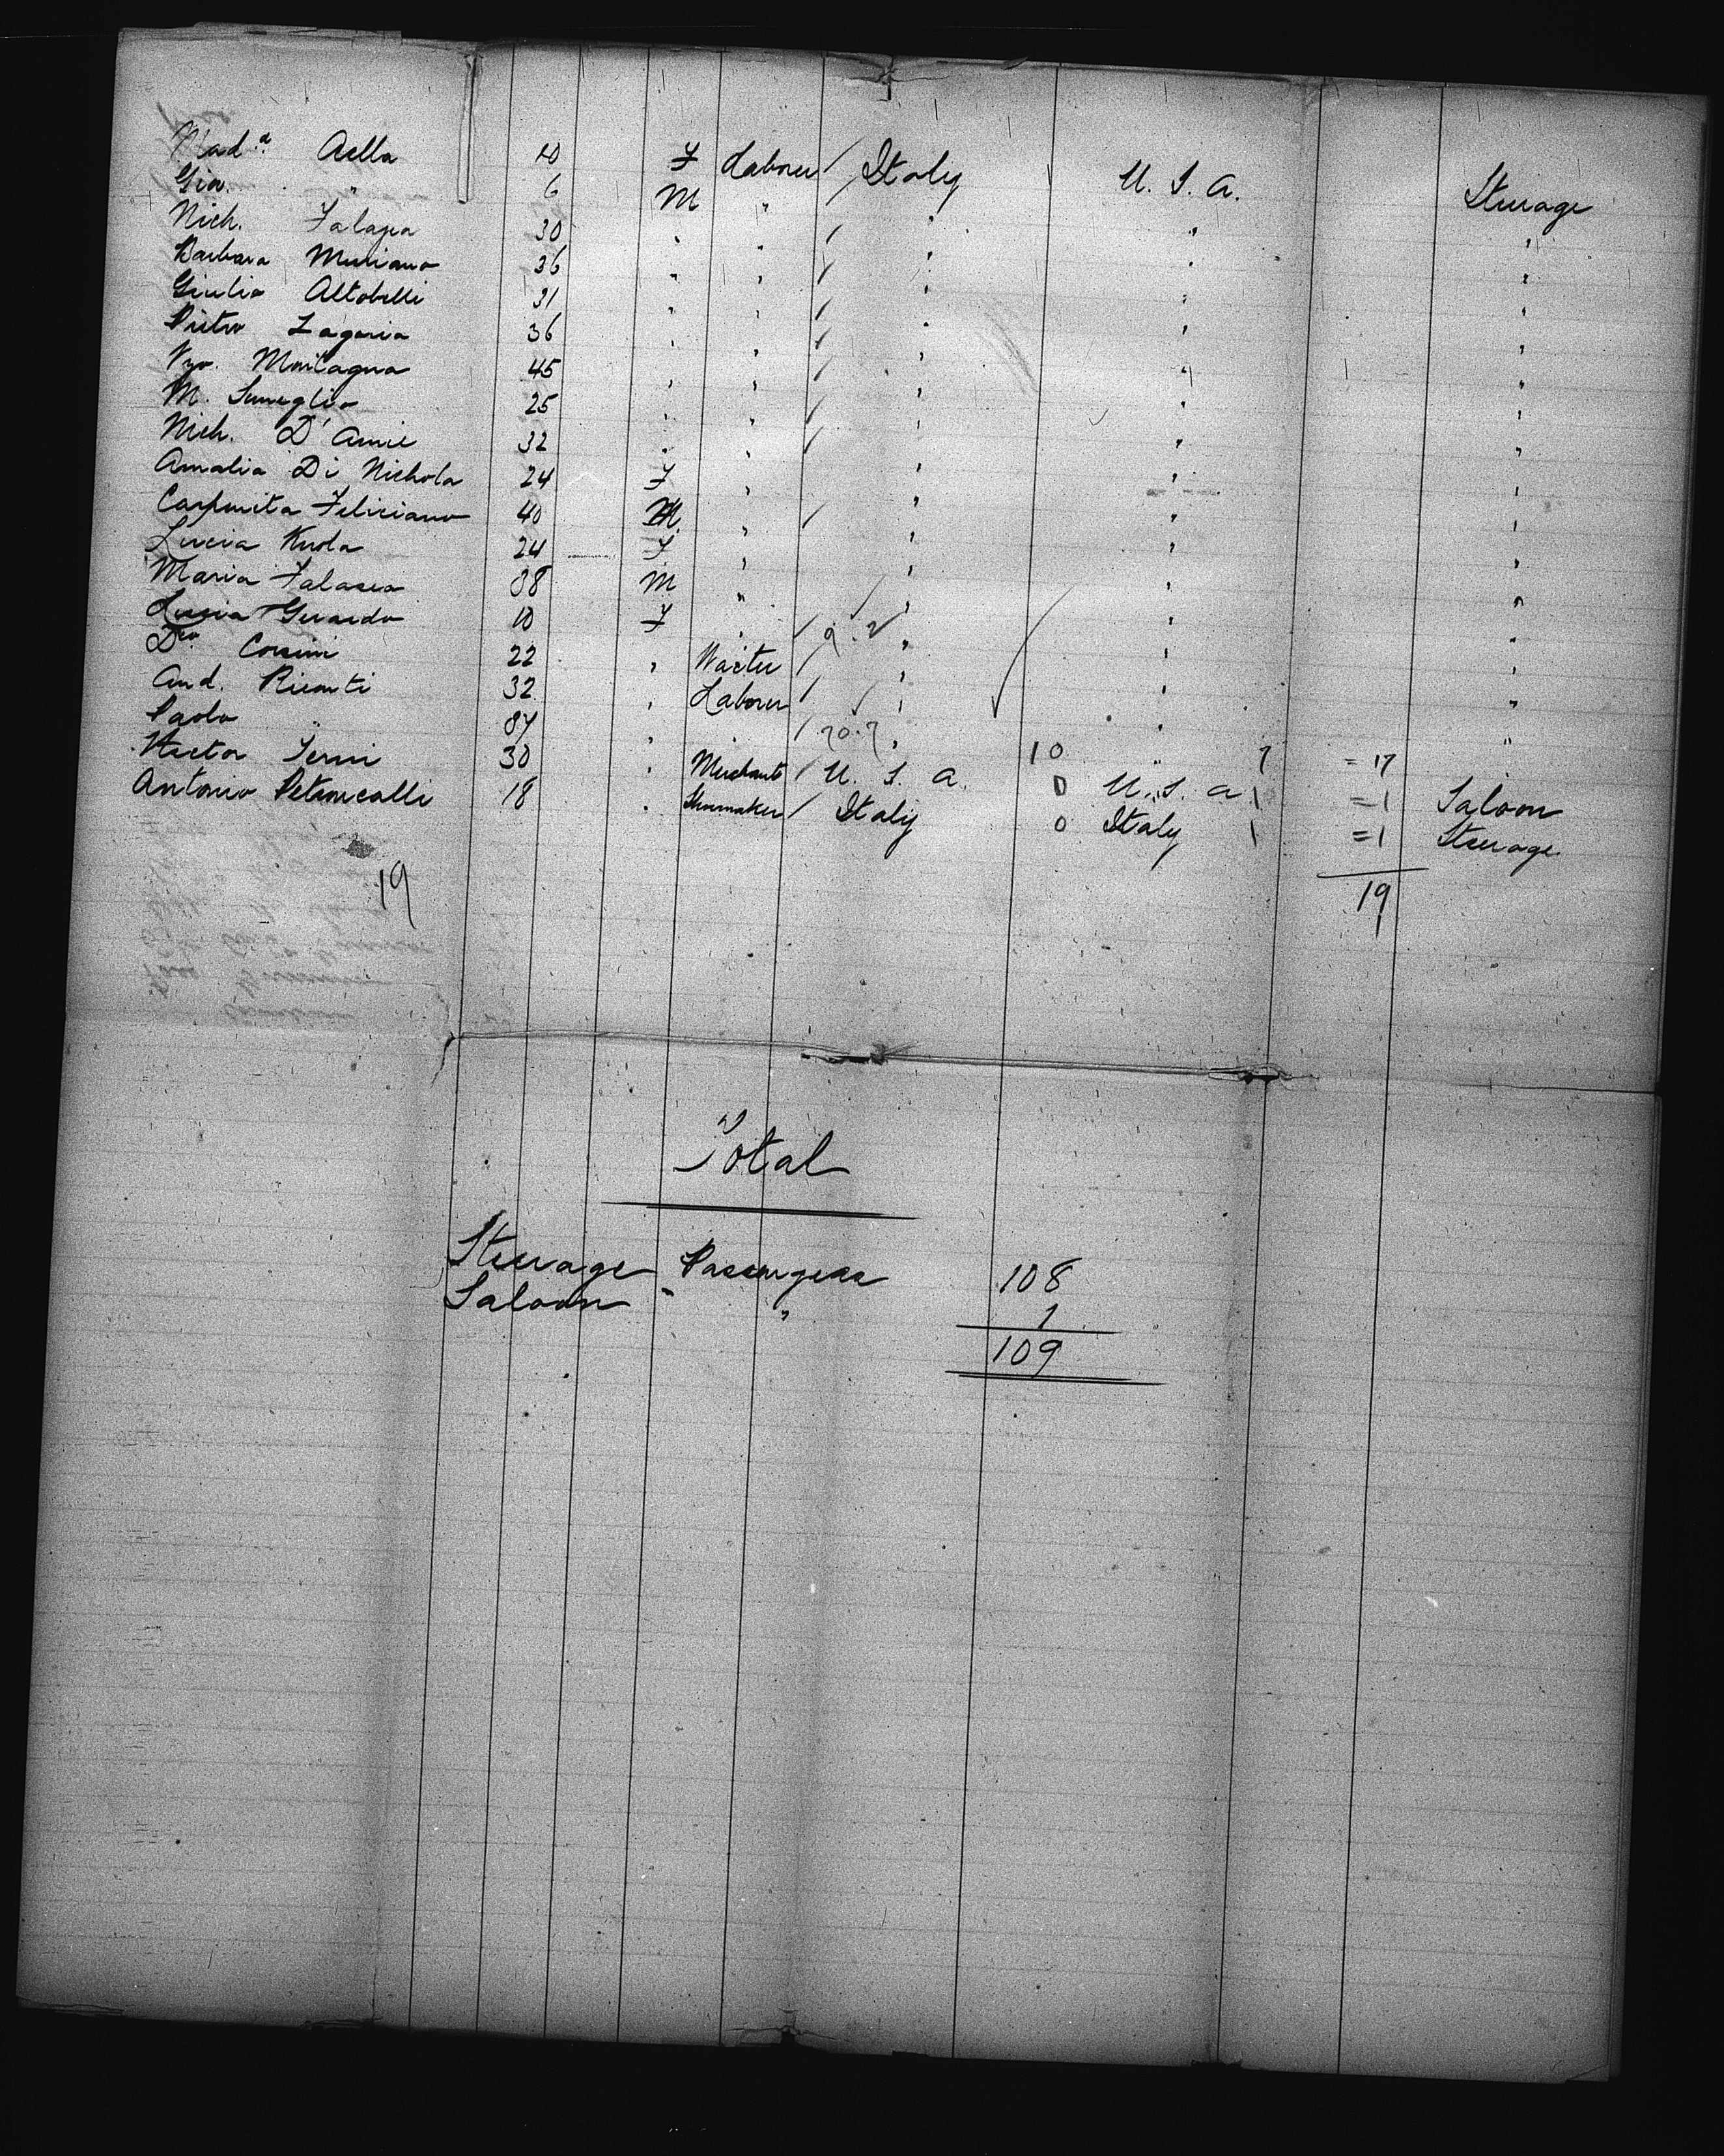 Mad.a Aella 10 F Laborer / Italy U. S. A. Steerage
Gio. " 6 M " / " " "
Nich. Falasca 30 " " / " " "
Barbara Muriano 36 " " / " " "
Giulio Altobelli 31 " " / " " "
Pietro Lagaria 36 " " / " " "
Vzo. Montagna 45 " " / " " "
M. Sumeglio 25 " " / " " "
Nich. D'Amie 32 " " / " " "
Amalia Di Nichola 24 F " " " "
Carpinita Feliciano 40 M. " / " " "
Lucia Knola 24 F " " " "
Maria Falasca 08 M " / " " "
Lucia Gerardo 10 F " / 9.2 " " "
Dco. Corsini 22 " Waiter / " " "
And. Riconti 32 " Laborer / " " "
Paolo " 04 " " / 10.7 " 10 " 7 = 17 "
Hector Serni 30 " Merchant / U. S. A. 0 U. S. A. 1 = 1 Saloon
Antonio Petroncalli 18 " Shoemaker / Italy 0 Italy 1 = 1 Steerage
19 19
Total
Steerage Passengers 108
Saloon " 1
109